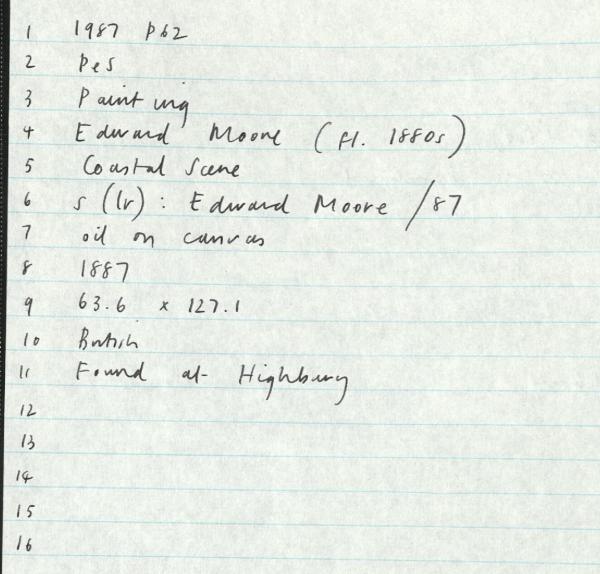 1 1987 P62
2 Pes
3 Painting
4 Edward Moore (fl. 1880s)
5 Coastal Scene
6 s (lr) : Edward Moore /87
7 oil on canvas
8 1887
9 63.6 x 127.1
10 British
11 Found at Highbury
12
13
14
15
16